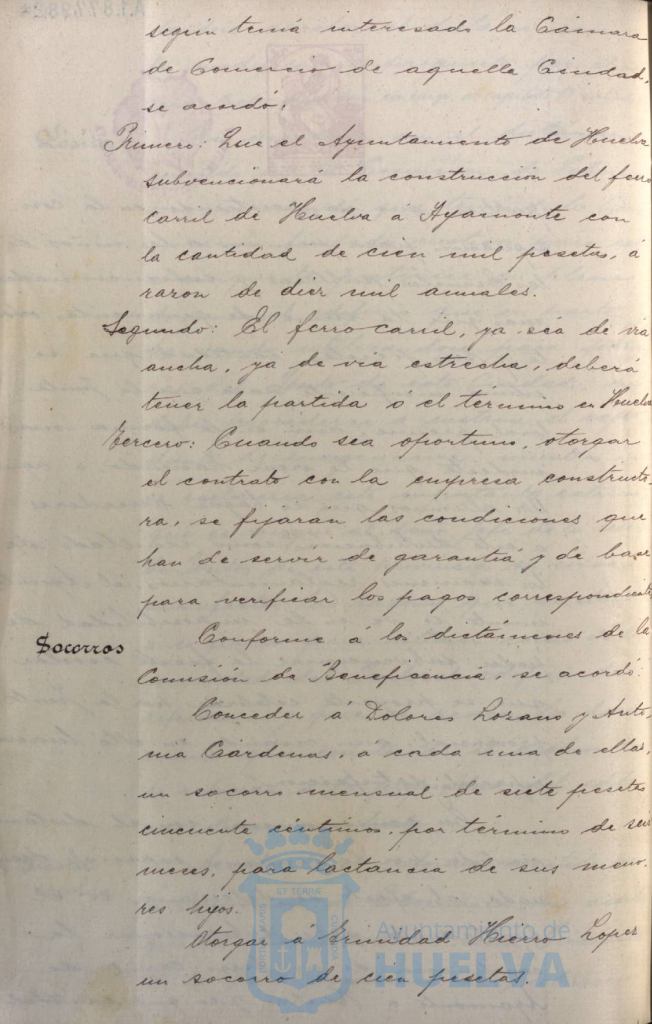 según tenía interesado la Cámara
de Comercio de aquella Ciudad,
se acordó:
Primero: Que el Ayuntamiento de Huelva
subvencionará la construcción del ferro
carril de Huelva á Ayamonte con
la cantidad de cien mil pesetas, á
razon de diez mil anuales.
Segundo: El ferro carril, ya sea de via
ancha, ya de via estrecha, deberá
tener la partida ó el término en Huelva
Tercero: Cuando sea oportuno, otorgar
el contrato con la empresa construto-
ra, se fijarán las condiciones que
han de servir de garantiá y de base
para verificar los pagos correspondientes
Socorros
Conforme á los dictámenes de la
Comisión de Beneficencia, se acordó:
Conceder á Dolores Lozano y Anto-
nia Cárdenas, á cada una de ellas,
un socorro mensual de siete pesetas
cincuenta céntimos, por término de seis
meses, para lactancia de sus meno-
res hijos.
Otorgar á Trinidad Hierro Lopez
un socorro de cien pesetas.
Ayuntamiento de
HUELVA